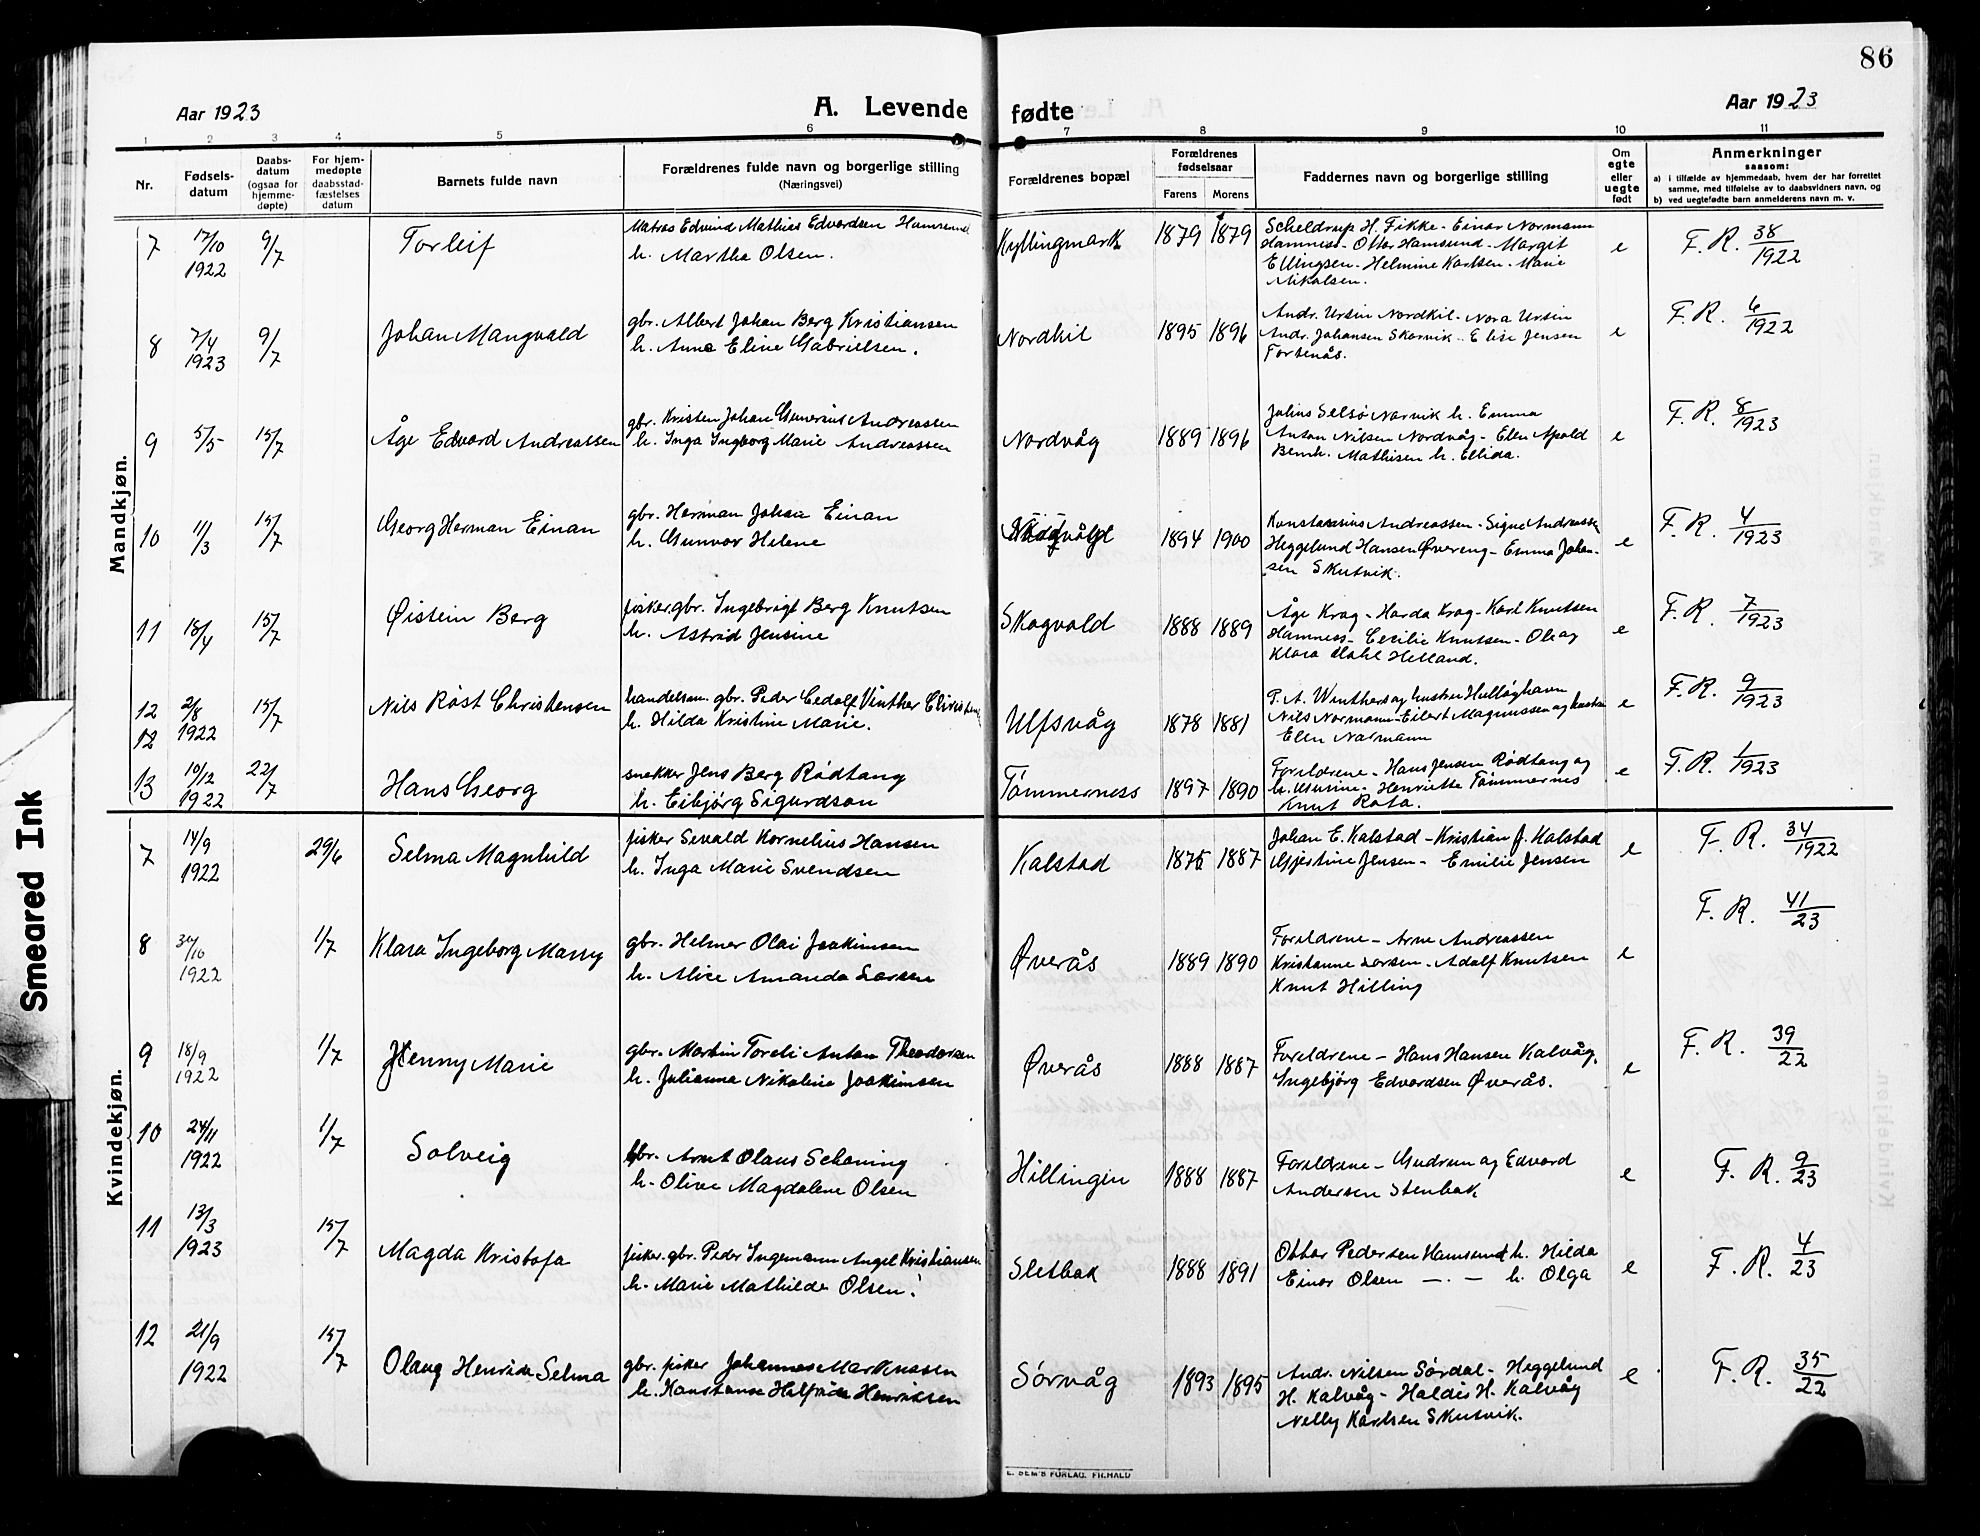 86
Aar 1923 A. Levende fødte Aar 1923
1 2 3 4 5 6 7 8 9 10 11
Nr.
Fødsels-
datum
Daabs-
datum
(ogsaa for
hjemme-
døpte)
For hjem-
medøpte
daabsstad-
fæstelses
datum
Barnets fulde navn
Forældrenes fulde navn og borgerlige stilling
(Næringsvei)
Forældrenes bopæl
Forældrenes
fødselsaar
Farens Morens
Faddernes navn og borgerlige stilling
Om
egte
eller
uegte
født
Anmerkninger
saasom:
a) i tilfælde av hjemmedaab, hvem der har forrettet
samme, med tilføielse av to daabsvidners navn, og
b) ved uegtefødte barn anmelderens navn m. v.
Mandkjøn.
7 17/10 1922 9/7 Torleif
Matros Edvind Mathias Edvardsen Hamsund
h. Martha Olsen.
Kyllingmark 1879 1879
Scheldrup H. Fikke - Einar Normann
Hamness - Ottar Hamsund - Margit
Ellingsen - Helmine Karlsen - Marie
Nikolsen.
e F. R. 38/1922
8 7/4 1923 9/7 Johan Mangvald
gbr. Albert Johan Berg Kristiansen
h. Anna Eline Gabrielsen.
Nordkil 1895 1896
Andr. Ursin Nordkil - Nora Ursin
Andr. Johansen Skarvik - Elise Jensen
Fortenås.
e F. R. 6/1922
9 5/5 15/7 Åge Edvard Andreassen
gbr. Kristen Johan Gunerius Andreassen
h. Inga Ingborg Marie Andreassen
Nordvåg 1889 1896
Julius Selsø Narvik h. Emma
Anton Nilsen Nordvåg - Elen Apold
Bernh. Mathisen h. Ellida.
e F. R. 8/1923
10 11/3 15/7 Georg Herman Einan
gbr. Herman Johan Einan
h. Gunvor Helene
1894 1900
Konstansius Andreassen - Signe Andreassen
Heggelund Hansen Øvereng - Emma Johan-
sen Skutvik.
e F. R. 4/1923
11 18/4 15/7 Øistein Berg
fisker, gbr. Ingebrigt Berg Knutsen
h. Astrid Jensine
Skogvold 1888 1889
Åge Krog - Harda Krog - Karl Knutsen
Hamness - Cecilie Knutsen - Ole og
Klara Dahl Helland.
e F. R. 7/1923
12
12 2/8 1922 15/7 Nils Røst Christensen
handelsm. gbr. Peder Cedolf Vinther Christens
h. Hilda Kristine Marie.
Ulfsvåg 1878 1881
P. A. Winthers og hustru Hulløyhavn
Nils Normann - Eilert Magnussen og hustru
Elen Normann
e F. R. 9/1923
13 10/12 1922 22/7 Hans Georg
snekker Jens Berg Rødtang
h. Eibjørg Sigurdson
Tømmerness 1897 1890
Foreldrene - Hans Jensen Rødtang og
h. - Henriette Tømmernes
Knut Rota.
e F. R. 1/1923
Kvindekjøn.
7 14/9 1922 29/6 Selma Magnhild
fisker Sevald Kornelius Hansen
h. Inga Marie Svendsen
Kalstad 1875 1887
Johan E. Kalstad - Kristian J. Kalstad
Gjertine Jensen - Emilie Jensen
e F. R. 34/1922
8 30/10 1922 1/7 Klara Ingeborg Marry
gbr. Helmer Olai Joakimsen
h. Alice Amanda Larsen
Øverås 1889 1890
Foreldrene - Arne Andreassen
Kristianne Larsen - Adolf Knutsen
Knut Hilling
e F. R. 41/23
9 18/9 1922 1/7 Jenny Marie
gbr. Martin Toreli Anton Theodorsen
h. Julianna Nikoline Joakimsen
Øverås 1888 1887
Foreldrene - Hans Hansen Kalvåg,
Ingebjørg Edvardsen Øverås.
e F. R. 39/22
10 24/11 1922 1/7 Solveig
gbr. Arnt Olaus Schøning
h. Olive Magdalene Olsen
Hillingen 1888 1887
Foreldrene - Gudrun og Edvard
Andersen Stenbak
e F. R. 9/23
11 13/3 1923 15/7 Magda Kristofa
fisker. gbr. Peder Ingemann Angel Kristiansen
h. Marie Mathilde Olsen.
Sletbak 1888 1891
Ottar Pedersen Hamsund h. Hilda
Einar Olsen — . — h. Olga
e F. R. 4/23
12 21/9 1922 15/7 Olaug Henrida Selma
gbr. fisker Johannes Markussen
h. Konstanse Halfrida Henriksen
Sørvåg 1893 1895
Andr. Nilsen Sørdal - Heggelund
H. Kalvåg - Haldis H. Kalvåg
Nelly Karlsen Skutvik.
e F. R. 35/22
Smeared Ink
E. SEM'S FORLAG, FR.HALD